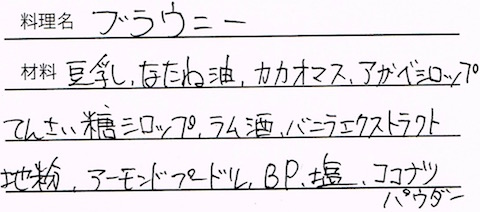 料理名 ブラウニー
材料 豆乳、なたね油、カカオマス、アガベシロップ
てんさい糖シロップ、ラム酒、バニラエクストラクト
地粉、アーモンドプードル、BP、塩、ココナツ
パウダー